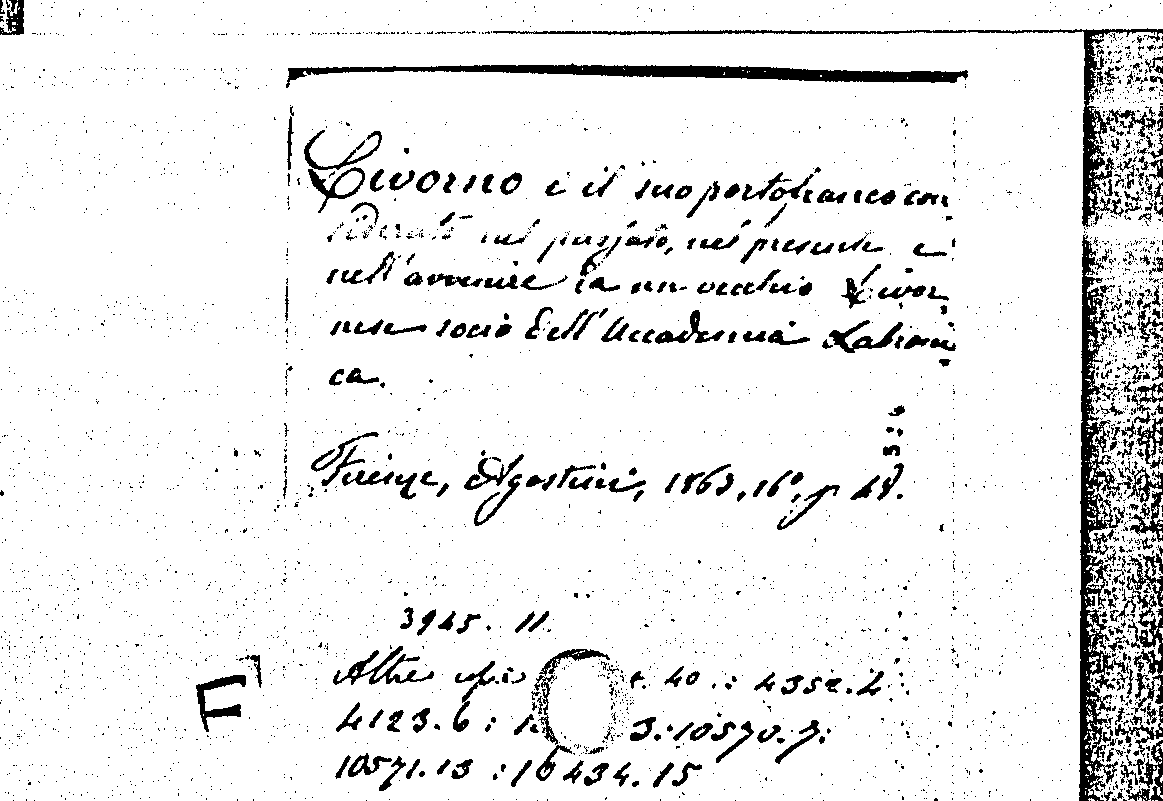 Livorno e il suo portofranco con-
siderato nel passato, nel presente e
nell'avvenire da un vecchio Livor-
nese socio dell'Accademia Labroni-
ca.
Firenze, Agostini, 1863, 16°, p 48.
3945. 11.
Altre copie 40.: 4352.2
4123.6: 3.:10570.7:
10571.13 :16434.15
F